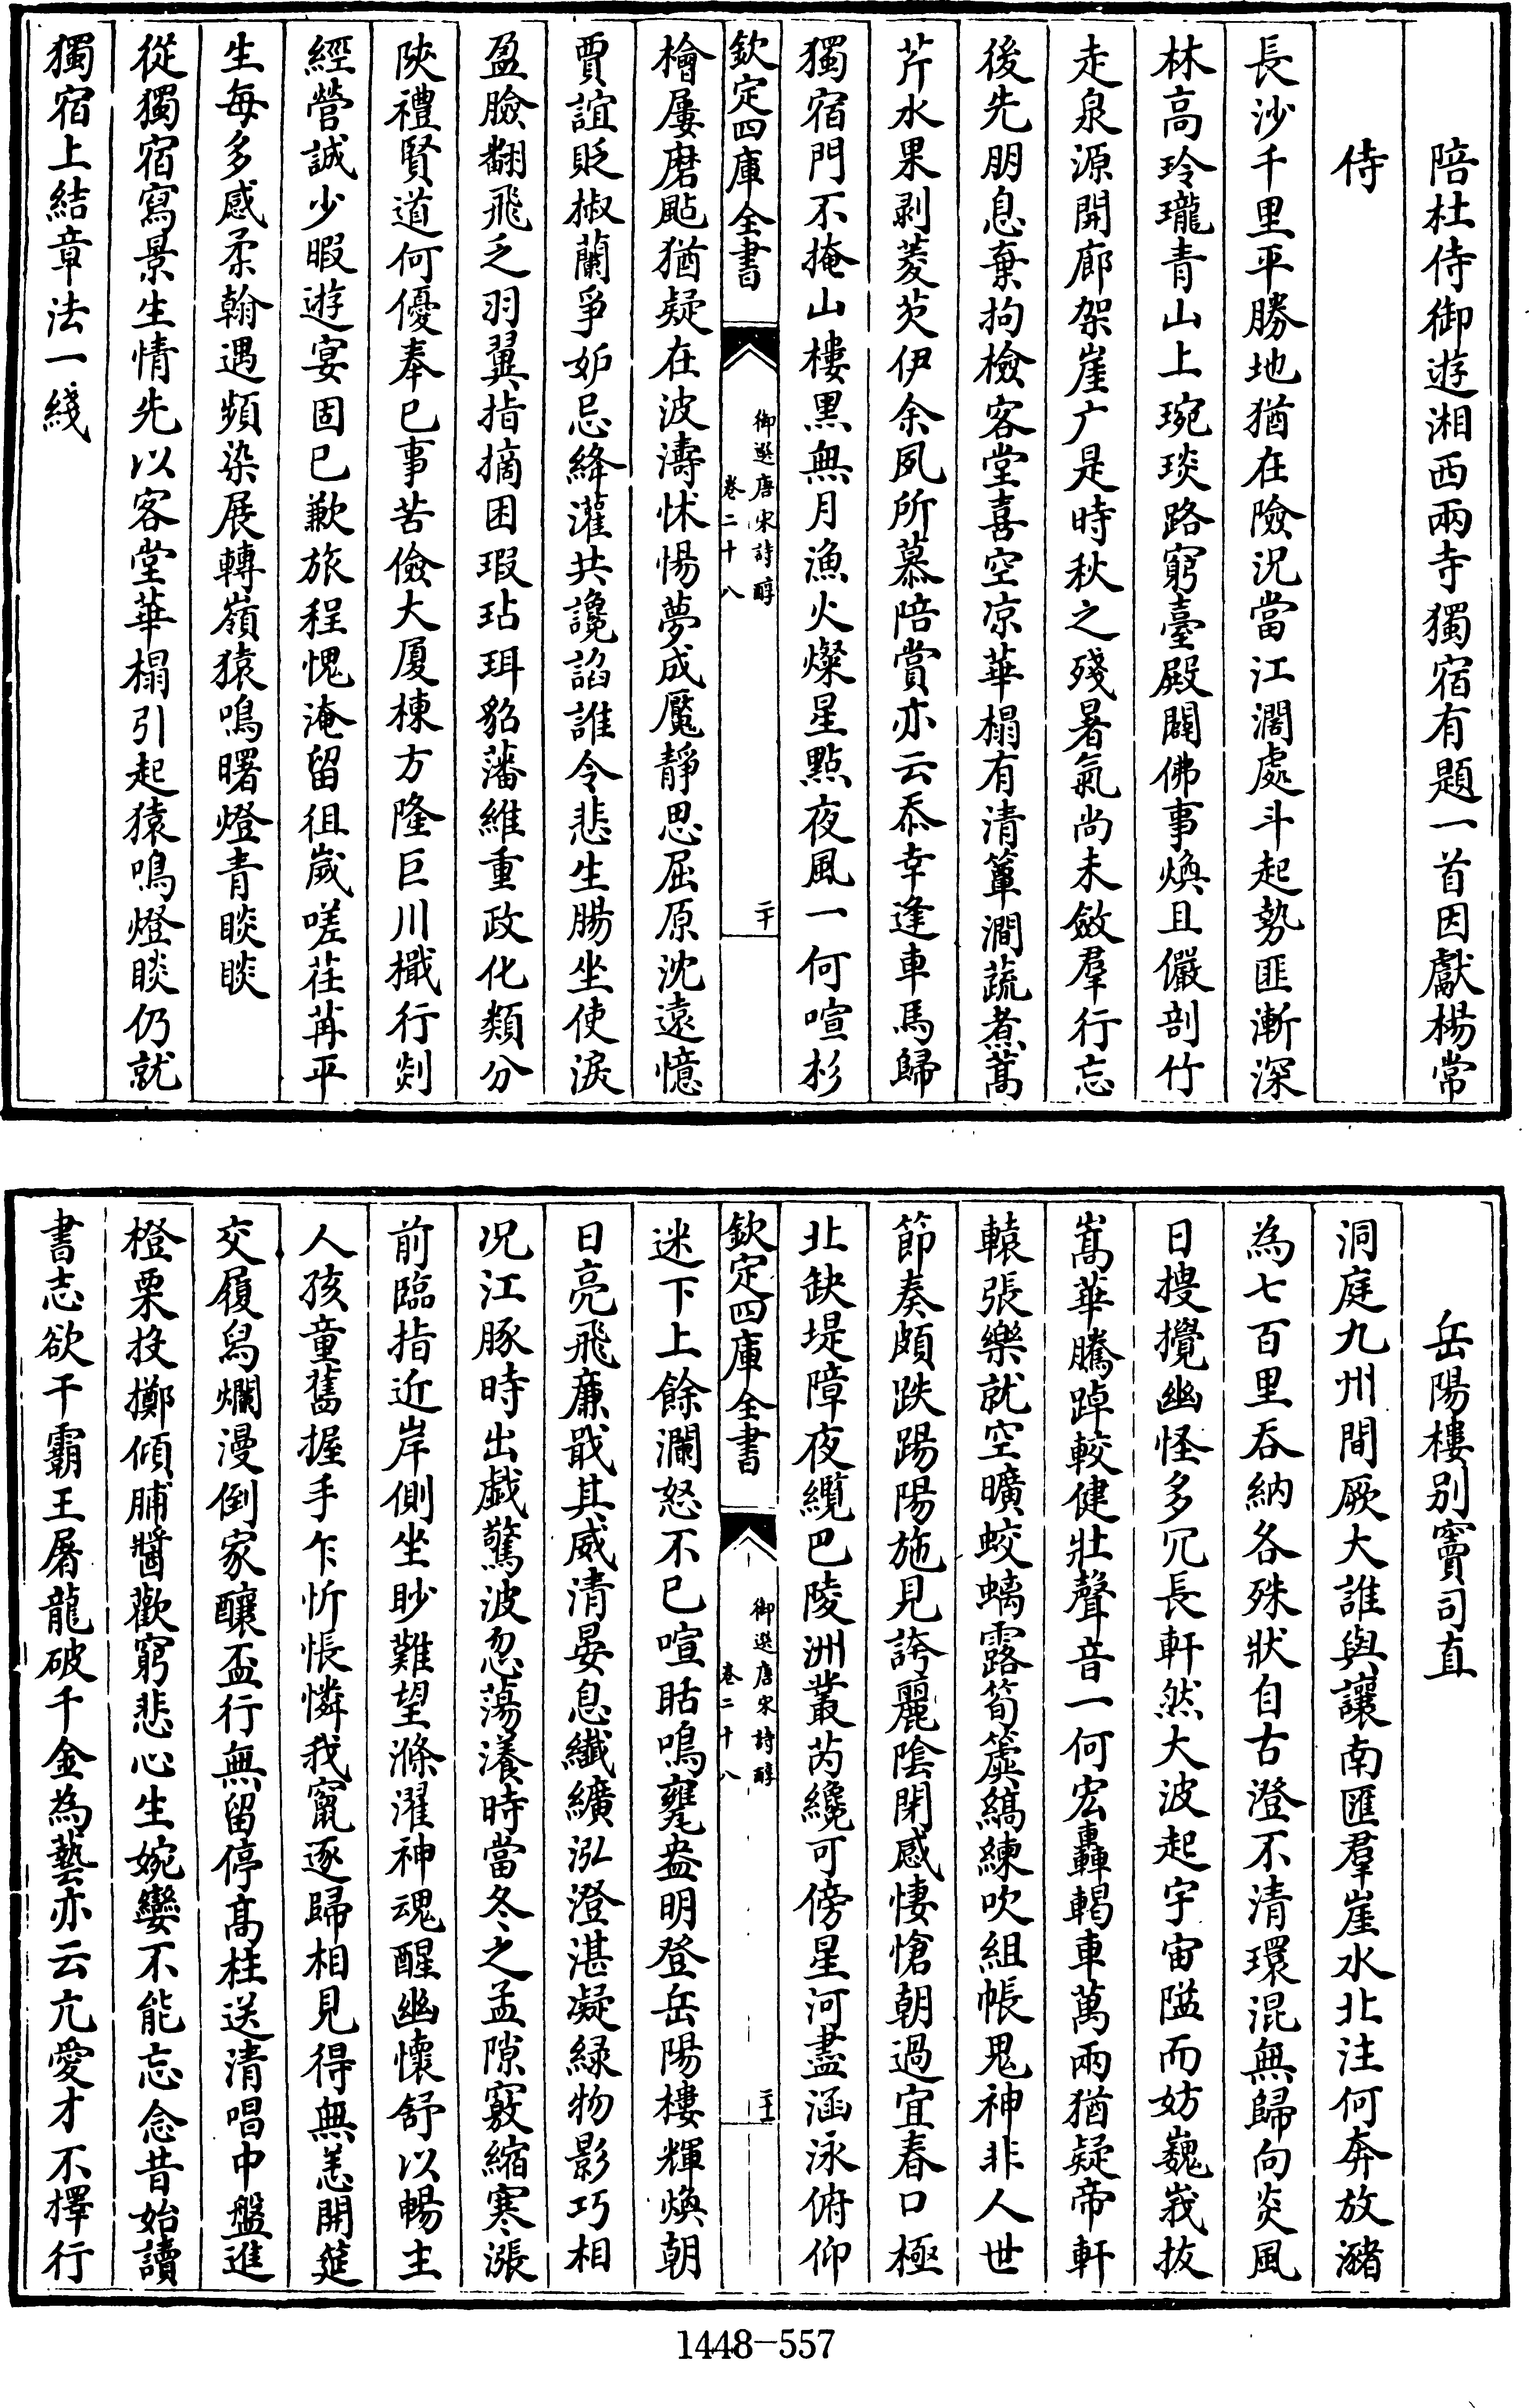 陪杜侍御遊湘西兩寺獨宿有題一首因獻楊常
侍
長沙千里平勝地猶在險況當江濶處斗起勢匪漸深
林高玲瓏青山上琬琰路窮臺殿闢佛事煥且儼剖竹
走泉源開廊架崖广是時秋之殘暑氣尚未斂羣行忘
後先朋息棄拘檢客堂喜空凉華榻有清簟澗蔬煮蒿
芹水果剥菱芡伊余夙所慕陪賞亦云忝幸逢車馬歸
獨宿門不掩山樓黑無月漁火燦星點夜風一何喧杉
欽定四庫全書
御選唐宋詩醇
卷二十八
二十
檜屢磨颭猶疑在波濤怵惕夢成魘靜思屈原沈遠憶
賈誼貶椒蘭爭妒忌絳灌共讒諂誰令悲生腸坐使淚
盈臉翻飛乏羽翼指摘困瑕玷珥貂藩維重政化類分
陝禮賢道何優奉已事苦儉大厦棟方隆巨川檝行剡
經營誠少暇遊宴固已歉旅程愧淹留徂歲嗟荏苒平
生每多感柔翰遇頻染展轉嶺猿鳴曙燈青睒睒
從獨宿寫景生情先以客堂華榻引起猿鳴燈睒仍就
獨宿上結章法一綫
岳陽樓别竇司直
洞庭九州間厥大誰與讓南匯羣崖水北注何奔放瀦
為七百里吞納各殊狀自古澄不清環混無歸向炎風
日搜攪幽怪多冗長軒然大波起宇宙隘而妨巍峩拔
嵩華騰踔較健壯聲音一何宏轟輵車萬兩猶疑帝軒
轅張樂就空曠蛟螭露筍簴縞練吹組帳鬼神非人世
節奏頗跌踢陽施見誇麗陰閉感悽愴朝過宜春口極
北缺堤障夜纜巴陵洲叢芮纔可傍星河盡涵泳俯仰
欽定四庫全書
御選唐宋詩醇
卷二十八
二十一
迷下上餘瀾怒不已喧聒鳴甕盎明登岳陽樓輝煥朝
日亮飛廉戢其威清晏息纖纊泓澄湛凝緑物影巧相
况江豚時出戱驚波忽蕩瀁時當冬之孟隙竅縮寒漲
前臨指近岸側坐眇難望滌濯神魂醒幽懷舒以暢主
人孩童舊握手乍忻悵憐我竄逐歸相見得無恙開筵
交履舄爛漫倒家釀盃行無留停髙柱送清唱中盤進
橙栗投擲傾脯醬歡窮悲心生婉孌不能忘念昔始讀
書志欲干霸王屠龍破千金為藝亦云亢愛才不擇行
1448-557